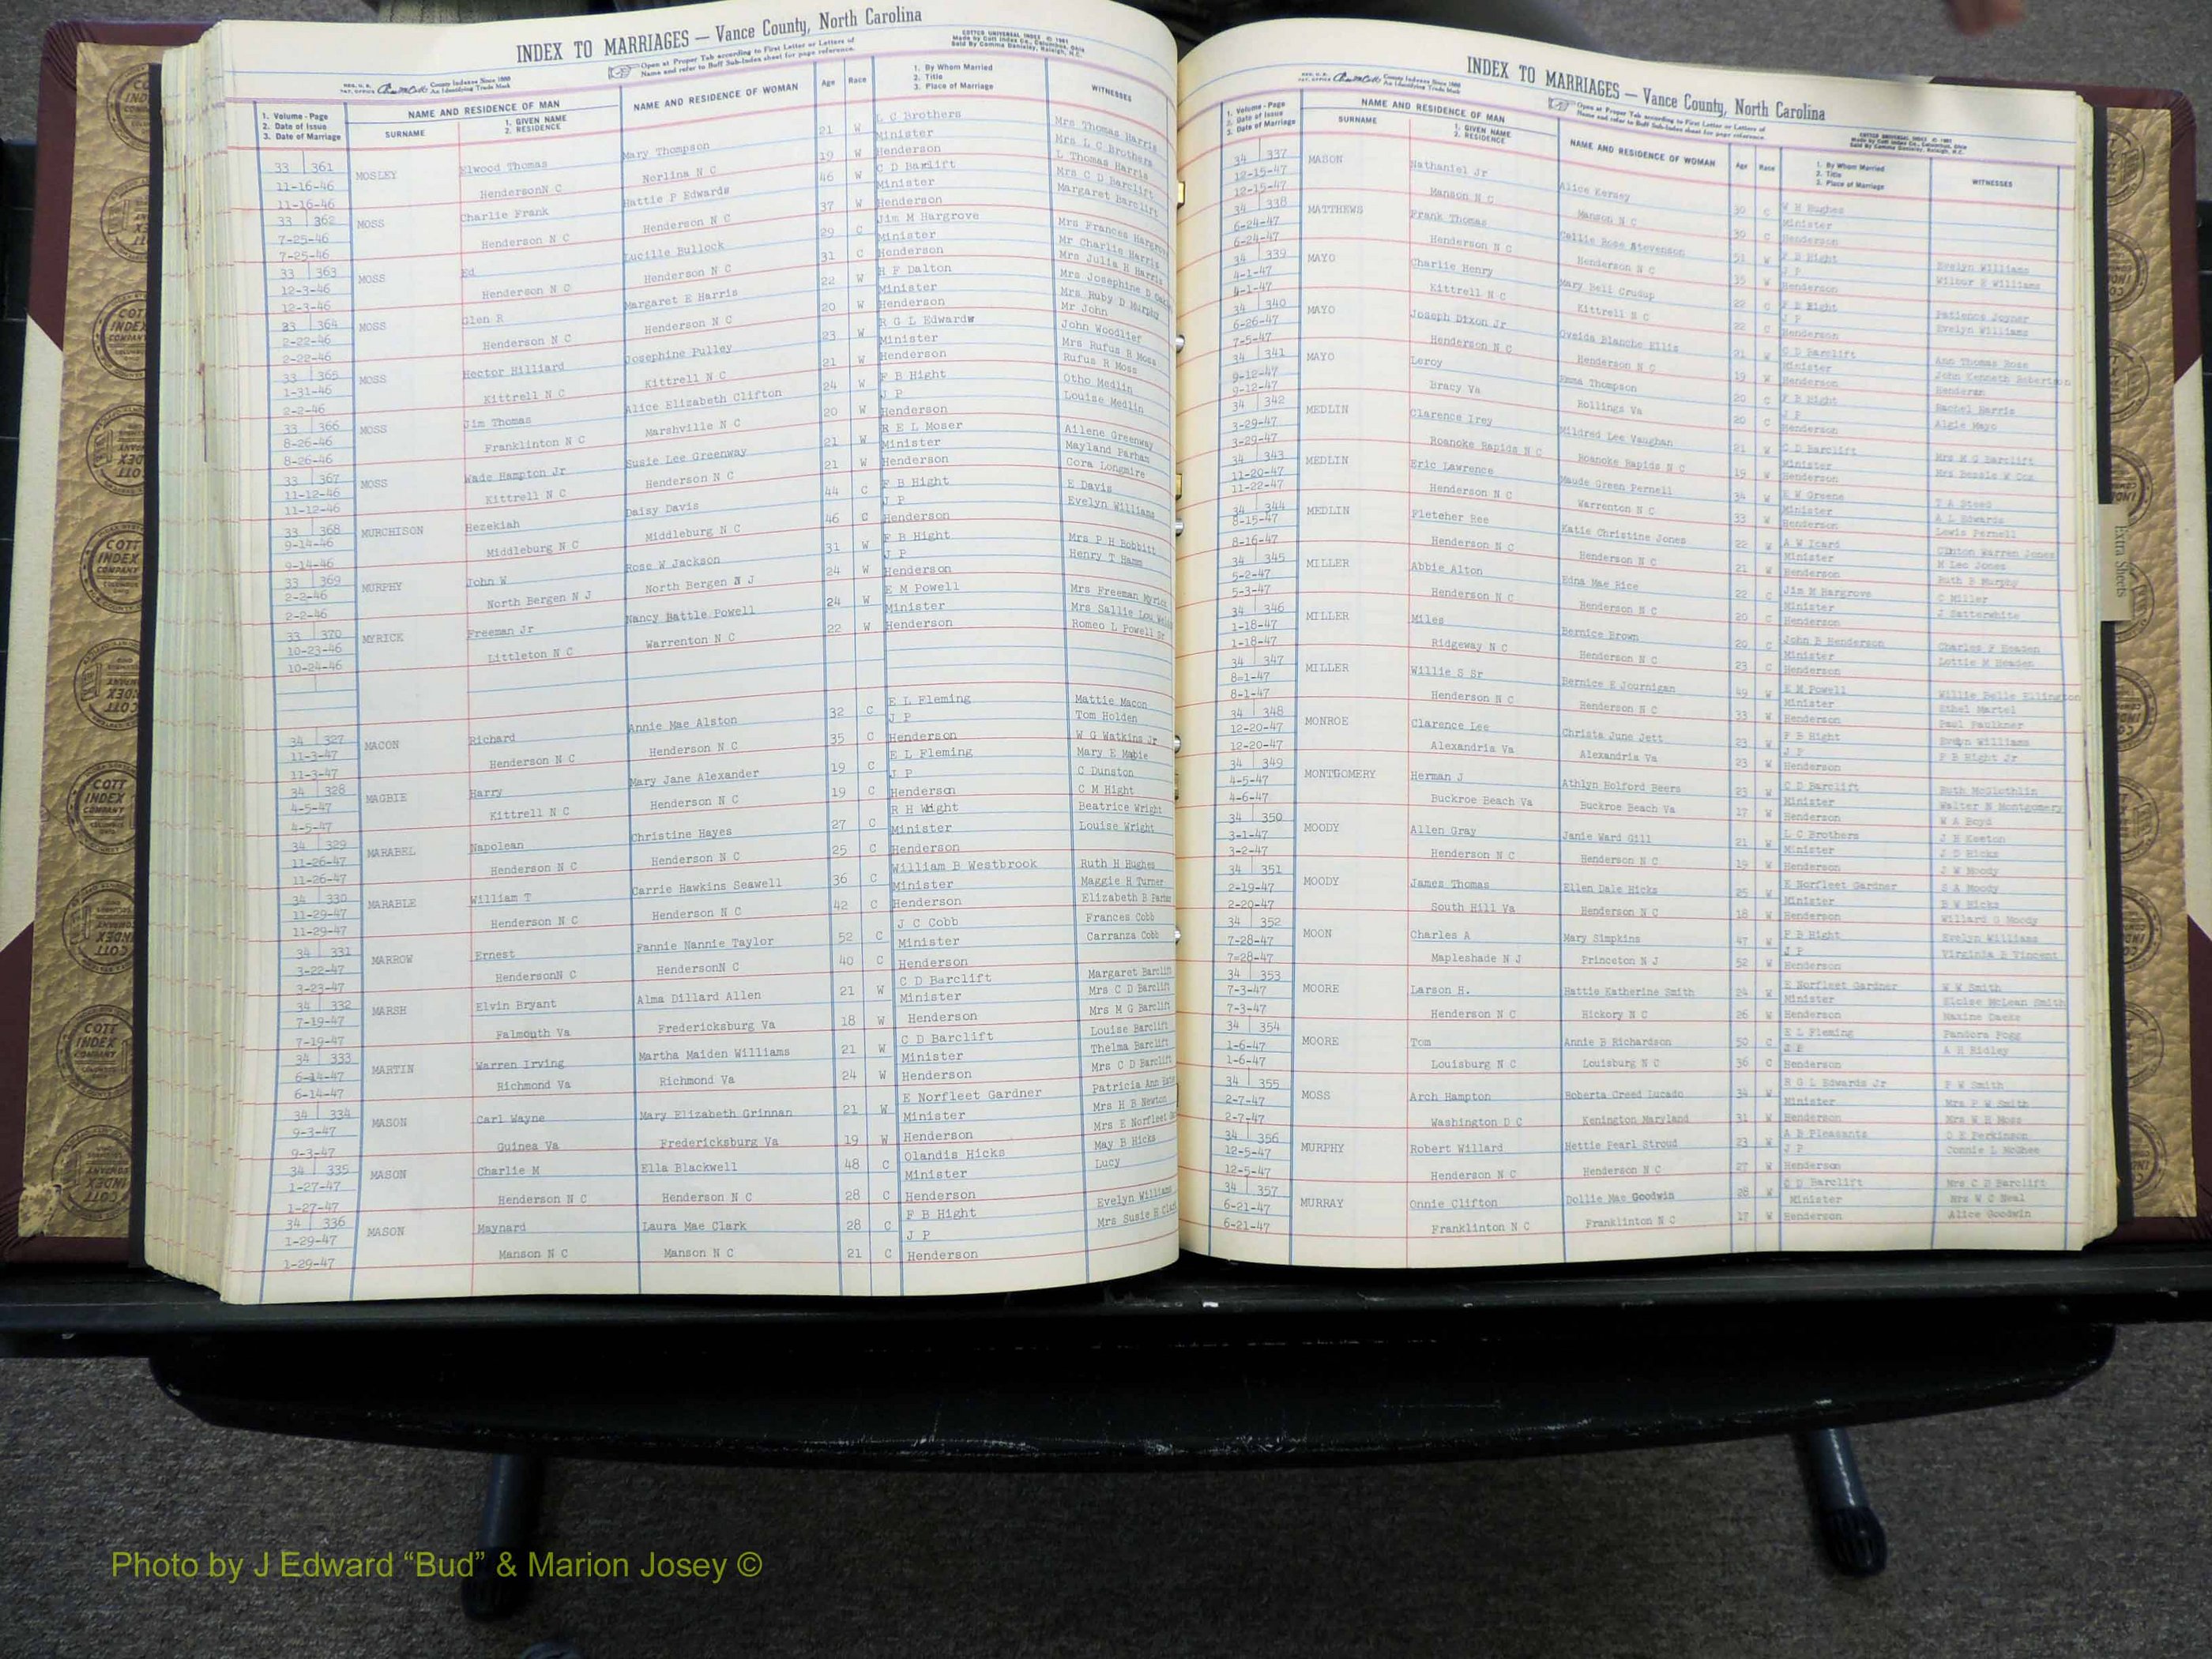 INDEX TO MARRIAGES — Vance County, North Carolina
Open at Proper Tab according to First Letter or Letters of
Name and refer to Buff Sub-Index sheet for page reference.
COTTCO UNIVERSAL INDEX © 1961
Made by Cott Index Co., Columbus, Ohio
County Indexes Since 1888
An Identifying Trade Mark
1. Volume - Page
2. Date of Issue
3. Date of Marriage
NAME AND RESIDENCE OF MAN
SURNAME
1. GIVEN NAME
2. RESIDENCE
NAME AND RESIDENCE OF WOMAN
Age
Race
1. By Whom Married
2. Title
3. Place of Marriage
WITNESSES
33 361 MOSLEY Elwood Thomas Mary Thompson 21 W L C Brothers Mrs Thomas Harris
11-16-46 HendersonN C Norlina N C 19 W Minister Mrs L C Brothers
11-16-46 Henderson L Thomas Harris
33 362 MOSS Charlie Frank Hattie P Edwards 46 W C D Barclift Mrs C D Barclift
7-25-46 Henderson N C Henderson N C 37 W Minister Margaret Barclift
7-25-46 Henderson
33 363 MOSS Ed Lucille Bullock 29 C Jim M Hargrove Mrs Frances
12-3-46 Henderson N C Henderson N C 31 C Minister Mr Charlie Harris
12-3-46 Henderson Mrs Julia H Harris
33 364 MOSS Glen R Margaret E Harris 22 W H F Dalton Mrs Josephine D
2-22-46 Henderson N C Henderson N C 20 W Minister Mrs Ruby D Murphy
2-22-46 Henderson Mr John
33 365 MOSS Hector Hilliard Josephine Pulley 23 W R G L Edwards John Woodlief
1-31-46 Kittrell N C Kittrell N C 21 W Minister Mrs Rufus R Moss
2-2-46 Henderson Rufus R Moss
33 366 MOSS Jim Thomas Alice Elizabeth Clifton 24 W F B Hight Otho Medlin
8-26-46 Franklinton N C Marshville N C 20 W J P Louise Medlin
8-26-46 Henderson
33 367 MOSS Wade Hampton Jr Susie Lee Greenway 21 W R E L Moser Ailene Greenway
11-12-46 Kittrell N C Henderson N C 21 W Minister Mayland Parham
11-12-46 Henderson Cora Longmire
33 368 MURCHISON Hezekiah Daisy Davis 44 C F B Hight E Davis
9-14-46 Middleburg N C Middleburg N C 46 C J P Evelyn Williams
9-14-46 Henderson
33 369 MURPHY John W Rose W Jackson 31 W F B Hight Mrs P H Bobbitt
2-2-46 North Bergen N J North Bergen N J 24 W J P Henry T Hamm
2-2-46 Henderson
33 370 MYRICK Freeman Jr Nancy Battle Powell 24 W E M Powell Mrs Freeman Myrick
10-23-46 Littleton N C Warrenton N C 22 W Minister Mrs Sallie Lou
10-24-46 Henderson Romeo L Powell Sr
34 327 MACON Richard Annie Mae Alston 32 C E L Fleming Mattie Macon
11-3-47 Henderson N C Henderson N C 35 C J P Tom Holden
11-3-47 Henderson W G Watkins Jr
34 328 MAGBIE Harry Mary Jane Alexander 19 C E L Fleming Mary E
4-5-47 Kittrell N C Henderson N C 19 C J P C Dunston
4-5-47 Henderson C M Hight
34 329 MARABEL Napolean Christine Hayes 27 C R H Wright Beatrice Wright
11-26-47 Henderson N C Henderson N C 25 C Minister Louise Wright
11-26-47 Henderson
34 330 MARABLE William T Carrie Hawkins Seawell 36 C William B Westbrook Ruth H Hughes
11-29-47 Henderson N C Henderson N C 42 C Minister Maggie H Turner
11-29-47 Henderson Elizabeth B
34 331 MARROW Ernest Fannie Nannie Taylor 52 C J C Cobb Frances Cobb
3-22-47 HendersonN C HendersonN C 40 C Minister Carranza Cobb
3-23-47 Henderson
34 332 MARSH Elvin Bryant Alma Dillard Allen 21 W C D Barclift Margaret Barclift
7-19-47 Falmouth Va Fredericksburg Va 18 W Minister Mrs C D Barclift
7-19-47 Henderson Mrs M G Barclift
34 333 MARTIN Warren Irving Martha Maiden Williams 21 W C D Barclift Louise Barclift
6-14-47 Richmond Va Richmond Va 24 W Minister Thelma Barclift
6-14-47 Henderson Mrs C D Barclift
34 334 MASON Carl Wayne Mary Elizabeth Grinnan 21 W E Norfleet Gardner Patricia Ann
9-3-47 Guinea Va Fredericksburg Va 19 W Minister Mrs H B Newton
9-3-47 Henderson Mrs E Norfleet
34 335 MASON Charlie M Ella Blackwell 48 C Olandis Hicks May B Hicks
1-27-47 Henderson N C Henderson N C 28 C Minister Lucy
1-27-47 Henderson
34 336 MASON Maynard Laura Mae Clark 28 C F B Hight Evelyn Williams
1-29-47 Manson N C Manson N C 21 C J P Mrs Susie H
1-29-47 Henderson
INDEX TO MARRIAGES — Vance County, North Carolina
Open at Proper Tab according to First Letter or Letters of
Name and refer to Buff Sub-Index sheet for page reference.
County Indexes Since 1888
An Identifying Trade Mark
1. Volume - Page
2. Date of Issue
3. Date of Marriage
NAME AND RESIDENCE OF MAN
SURNAME
1. GIVEN NAME
2. RESIDENCE
NAME AND RESIDENCE OF WOMAN
Age
Race
1. By Whom Married
2. Title
3. Place of Marriage
WITNESSES
34 337 MASON Nathaniel Jr Alice Kersey 30 C W H Hughes
12-15-47 Manson N C Manson N C 30 C Minister
12-15-47 Henderson
34 338 MATTHEWS Frank Thomas Callie Rose Stevenson 51 W F B Hight Evelyn Williams
6-24-47 Henderson N C Henderson N C 35 W J P Wilbur S Williams
6-24-47 Henderson
34 339 MAYO Charlie Henry Mary Bell Crudup 22 C F B Hight Patience Joyner
4-1-47 Kittrell N C Kittrell N C 22 C J P Evelyn Williams
4-1-47 Henderson
34 340 MAYO Joseph Dixon Jr Oveida Blanche Ellis 21 W C D Barclift Ann Thomas Rose
6-26-47 Henderson N C Henderson N C 19 W Minister John Kenneth Robertson
7-5-47 Henderson
34 341 MAYO Leroy Emma Thompson 20 C F B Hight Rachel Harris
9-12-47 Bracy Va Rollings Va 20 C J P Algie Mayo
9-12-47 Henderson
34 342 MEDLIN Clarence Irey Mildred Lee Vaughan 21 W C D Barclift Mrs M G Barclift
3-29-47 Roanoke Rapids N C Roanoke Rapids N C 19 W Minister Mrs Bessie W Cox
3-29-47 Henderson
34 343 MEDLIN Eric Lawrence Maude Green Pernell 34 W E W Greene T A Steed
11-20-47 Henderson N C Warrenton N C 33 W Minister A L Edwards
11-22-47 Henderson Lewis Pernell
34 344 MEDLIN Fletcher Ree Katie Christine Jones 22 W A W Icard Clinton Warren Jones
8-15-47 Henderson N C Henderson N C 21 W Minister M Leo Jones
8-16-47 Henderson Ruth B Murphy
34 345 MILLER Abbie Alton Edna Mae Rice 22 C Jim M Hargrove C Miller
5-2-47 Henderson N C Henderson N C 20 C Minister J Satterwhite
5-3-47 Henderson
34 346 MILLER Miles Bernice Brown 20 C John B Henderson Charles F Headen
1-18-47 Ridgeway N C Henderson N C 23 C Minister Lottie M Headen
1-18-47 Henderson
34 347 MILLER Willie S Sr Bernice E Journigan 49 W E M Powell Willie Belle Ellington
8-1-47 Henderson N C Henderson N C 33 W Minister Ethel Martel
8-1-47 Henderson Paul Faulkner
34 348 MONROE Clarence Lee Christa June Jett 23 W F B Hight Evelyn Williams
12-20-47 Alexandria Va Alexandria Va 23 W J P F B Hight Jr
12-20-47 Henderson
34 349 MONTGOMERY Herman J Athlyn Holford Beers 23 W C D Barclift Ruth McGlothlin
4-5-47 Buckroe Beach Va Buckroe Beach Va 17 W Minister Walter N Montgomery
4-6-47 Henderson W A Boyd
34 350 MOODY Allen Gray Janie Ward Gill 21 W L C Brothers J B Keeton
3-1-47 Henderson N C Henderson N C 19 W Minister J D Hicks
3-2-47 Henderson J W Moody
34 351 MOODY James Thomas Ellen Dale Hicks 25 W E Norfleet Gardner S A Moody
2-19-47 South Hill Va Henderson N C 18 W Minister B W Hicks
2-20-47 Henderson Willard G Moody
34 352 MOON Charles A Mary Simpkins 47 W F B Hight Evelyn Williams
7-28-47 Mapleshade N J Princeton N J 52 W J P Virginia B Vincent
7-28-47 Henderson
34 353 MOORE Larson H. Hattie Katherine Smith 24 W E Norfleet Gardner W W Smith
7-3-47 Henderson N C Hickory N C 26 W Minister Eloise McLean Smith
7-3-47 Henderson Maxine
34 354 MOORE Tom Annie B Richardson 50 C E L Fleming Pandora Fogg
1-6-47 Louisburg N C Louisburg N C 36 C J P A H Ridley
1-6-47 Henderson
34 355 MOSS Arch Hampton Roberta Creed Lucado 34 W R G L Edwards Jr P W Smith
2-7-47 Washington D C Kenington Maryland 31 W Minister Mrs P W Smith
2-7-47 Henderson Mrs W H Moss
34 356 MURPHY Robert Willard Hettie Pearl Stroud 23 W A B Pleasants O E Perkinson
12-5-47 Henderson N C Henderson N C 27 W J P Connie L McGhee
12-5-47 Henderson
34 357 MURRAY Onnie Clifton Dollie Mae Goodwin 28 W C D Barclift Mrs C D Barclift
6-21-47 Franklinton N C Franklinton N C 17 W Minister Mrs W C Neal
6-21-47 Henderson Alice Goodwin
Extra Sheets
COTT INDEX COMPANY
Photo by J Edward “Bud” & Marion Josey ©